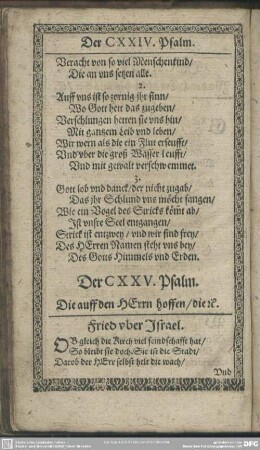 Der CXXIV. Psalm.
Veracht von so viel Menschenkind/
Die an vns setzen alle.
2.
Auff vns ist so zornig ihr sinn/
Wo Gott hett das zugeben/
Verschlungen hetten sie vns hin/
Mit gantzem Leib vnd leben/
Wir wern als die ein Flut erseufft/
Vnd vber die groß Wasser leufft/
Vnd mit gewalt verschwemmet.
3.
Gott lob vnd danck/ der nicht zugab/
Das ihr Schlund vns möcht fangen/
Wie ein Vogel des Stricks kömt ab/
Ist vnsre Seel entgangen/
Strick ist entzwey / vnd wir sind frey/
Des HErren Namen steht vns bey/
Des Gotts Himmels vnd Erden.
Der CXXV. Psalm.
Die auff den HErrn hoffen/ die ꝛc.
Fried vber Israel.
OB gleich die Kirch viel feindschafft hat/
So bleibt sie doch. Sie ist die Stadt/
Darob der HErr selbst helt die wach/
Vnd